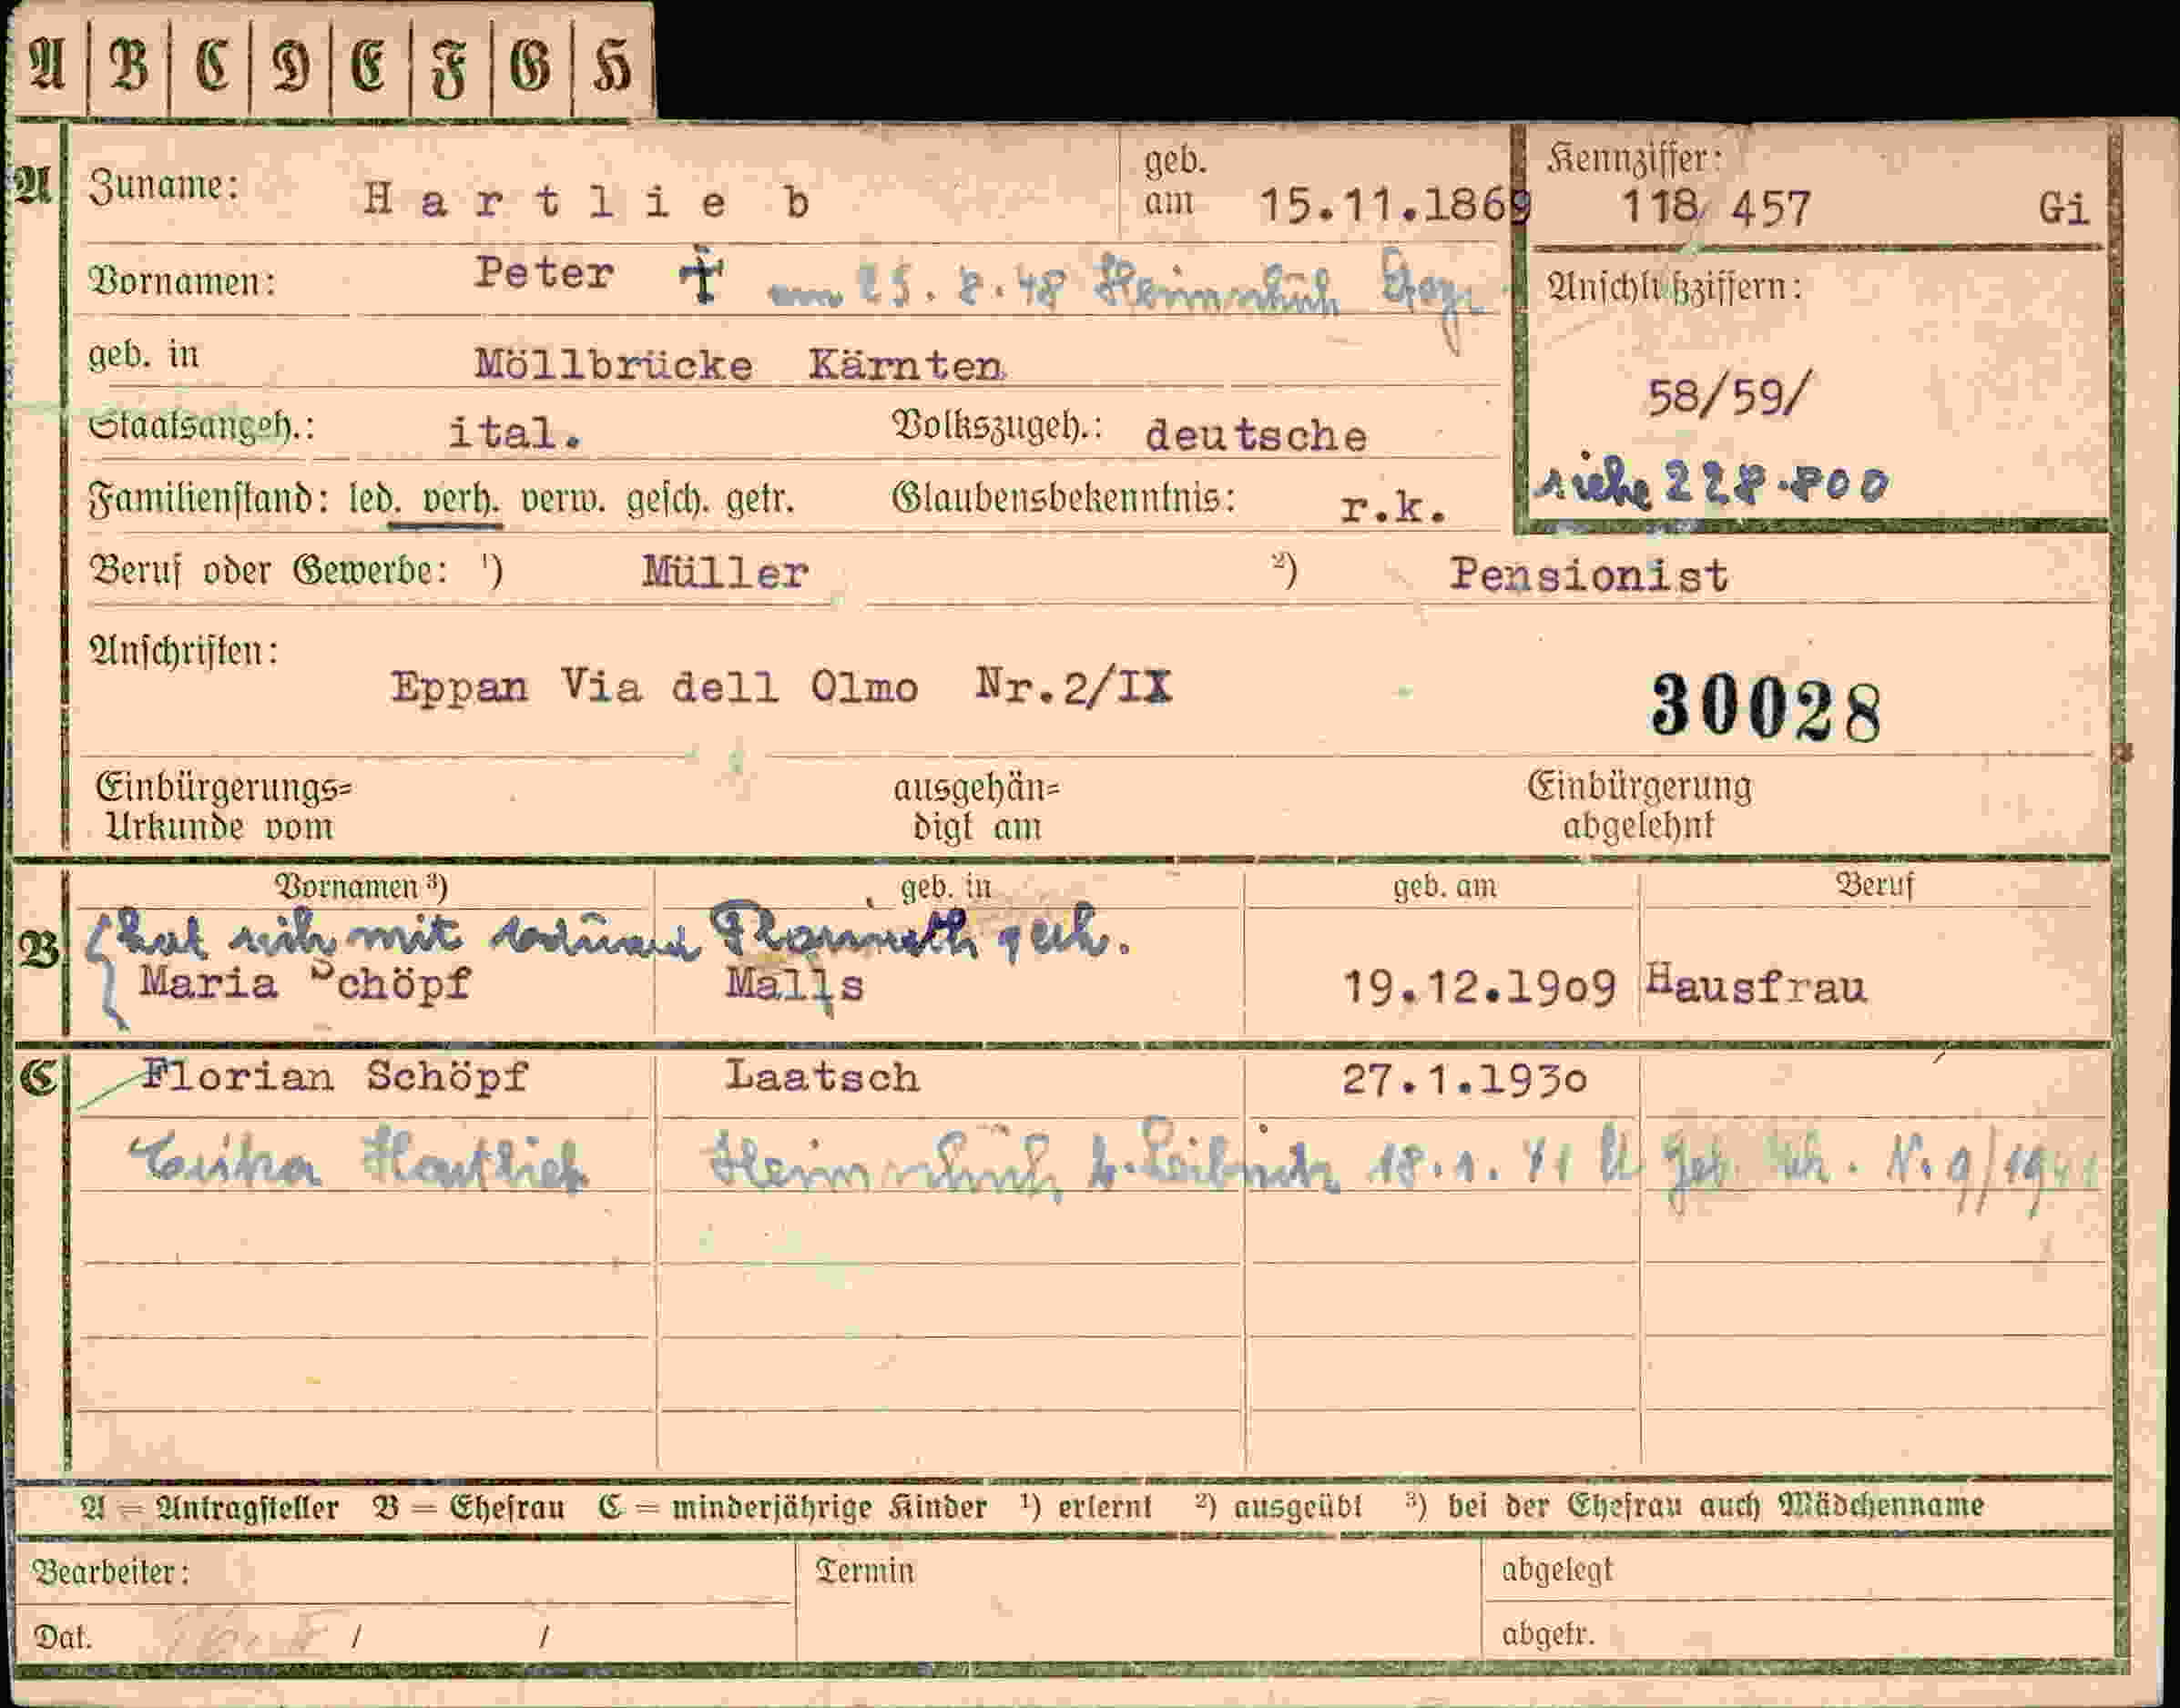 A B C D E F G H
A Zuname: Hartlieb geb. am 15.11.1869 Kennziffer: 118 457 Gi
Vornamen: Peter † am 25. 8.48 Heimschuh
Anschlußziffern:
geb. in Möllbrücke Kärnten
58/59/
Staatsangeh.: ital. Volkszugeh.: deutsche
siehe 228.800
Familienstand: led. verh. verw. gesch. getr. Glaubensbekenntnis: r.k.
Beruf oder Gewerbe: ¹) Müller ²) Pensionist
Anschriften:
Eppan Via dell Olmo Nr.2/IX
30028
Einbürgerungs= ausgehän= Einbürgerung
Urkunde vom digt am abgelehnt
Vornamen ³) geb. in geb. am Beruf
B hat sich mit
Maria Schöpf Malls 19.12.1909 Hausfrau
C Florian Schöpf Laatsch 27.1.1930
Erika Hartlieb Heimschuh b. Leibnitz 18.1.41 N. 9/1941
A = Antragsteller B = Ehefrau C = minderjährige Kinder ¹) erlernt ²) ausgeübt ³) bei der Ehefrau auch Mädchenname
Bearbeiter: Termin abgelegt
Dat. / / abgetr.